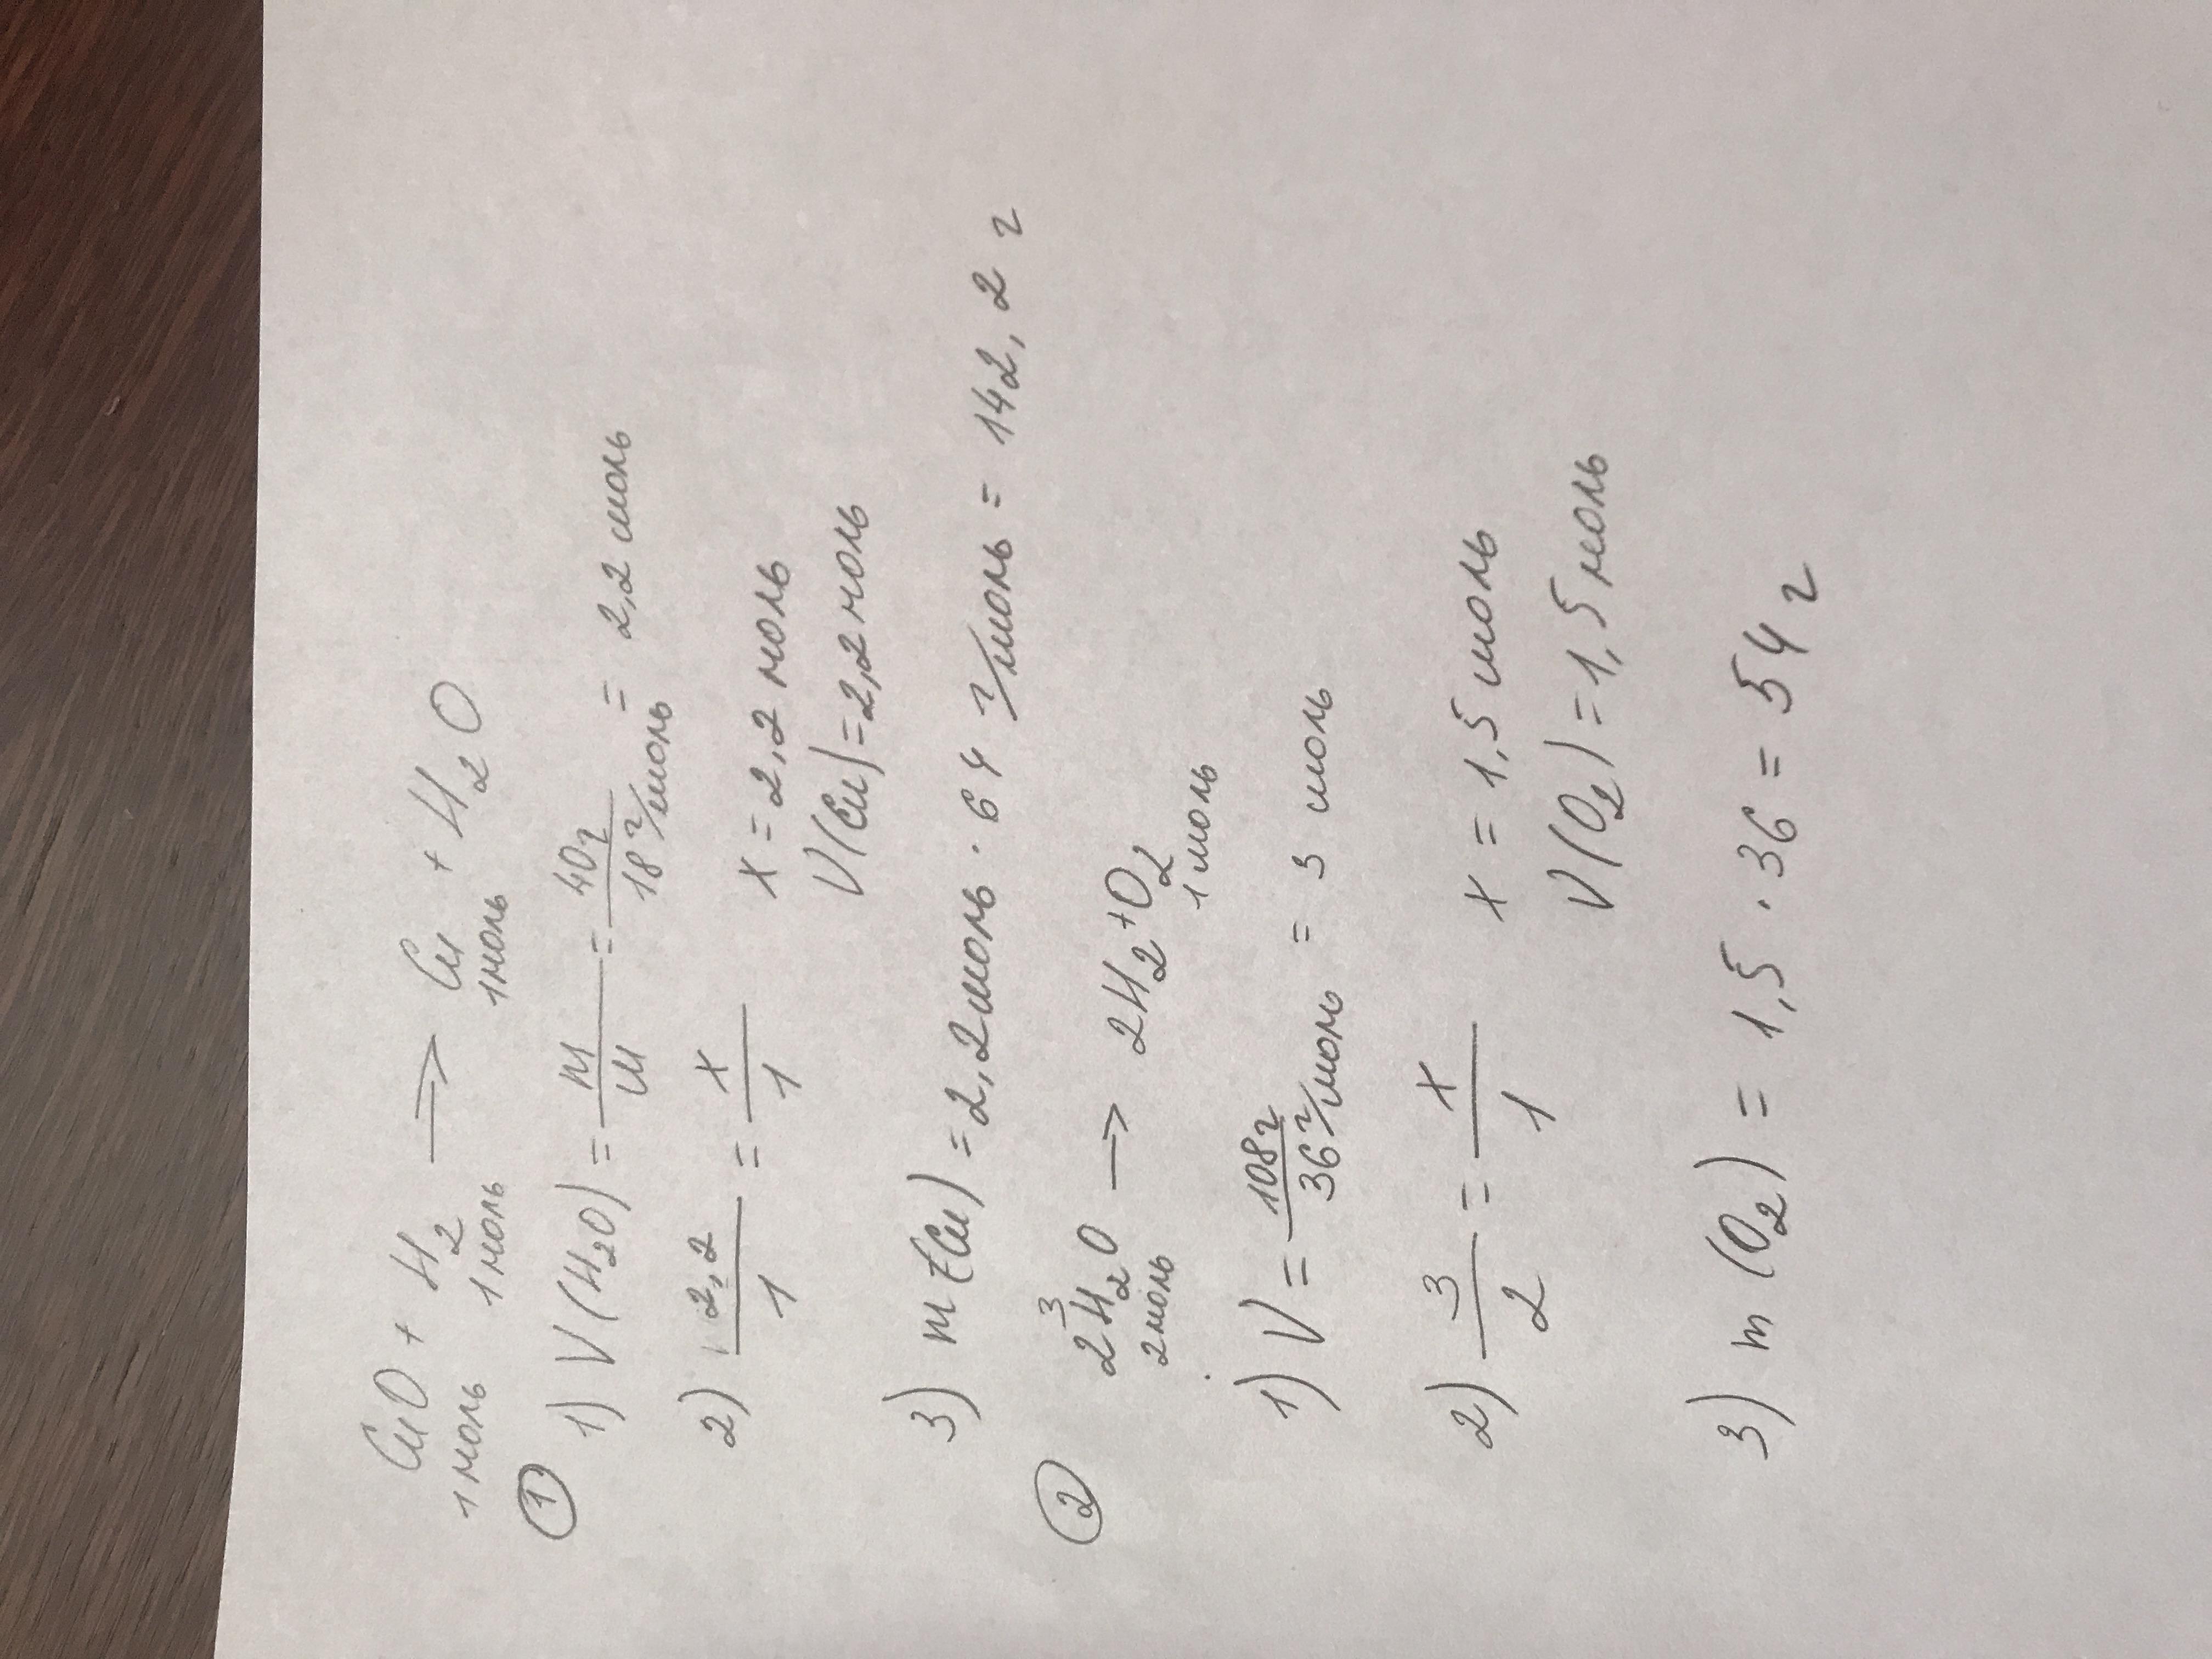 CuO + H₂ → Cu + H₂O
1 моль 1 моль 1 моль
① 1) V(H₂O) = m/M = 40г/18 г/моль = 2,2 моль
2) 2,2/1 = x/1 x = 2,2 моль
V(Cu) = 2,2 моль
3) m(Cu) = 2,2 моль · 64 г/моль = 142,2 г
② 3
2H₂O → 2H₂ + O₂
2 моль 1 моль
1) V = 108г/36 г/моль = 3 моль
2) 3/2 = x/1 x = 1,5 моль
V(O₂) = 1,5 моль
3) m(O₂) = 1,5 · 36 = 54 г